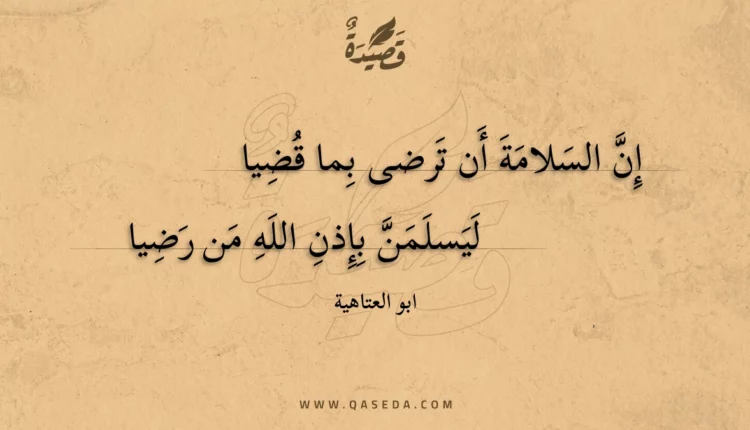 قَصِيْدَةٌ
إِنَّ السَلامَةَ أَن تَرضى بِما قُضِيا
لَيَسلَمَنَّ بِإِذنِ اللَهِ مَن رَضِيا
ابو العتاهية
WWW.QASEDA.COM